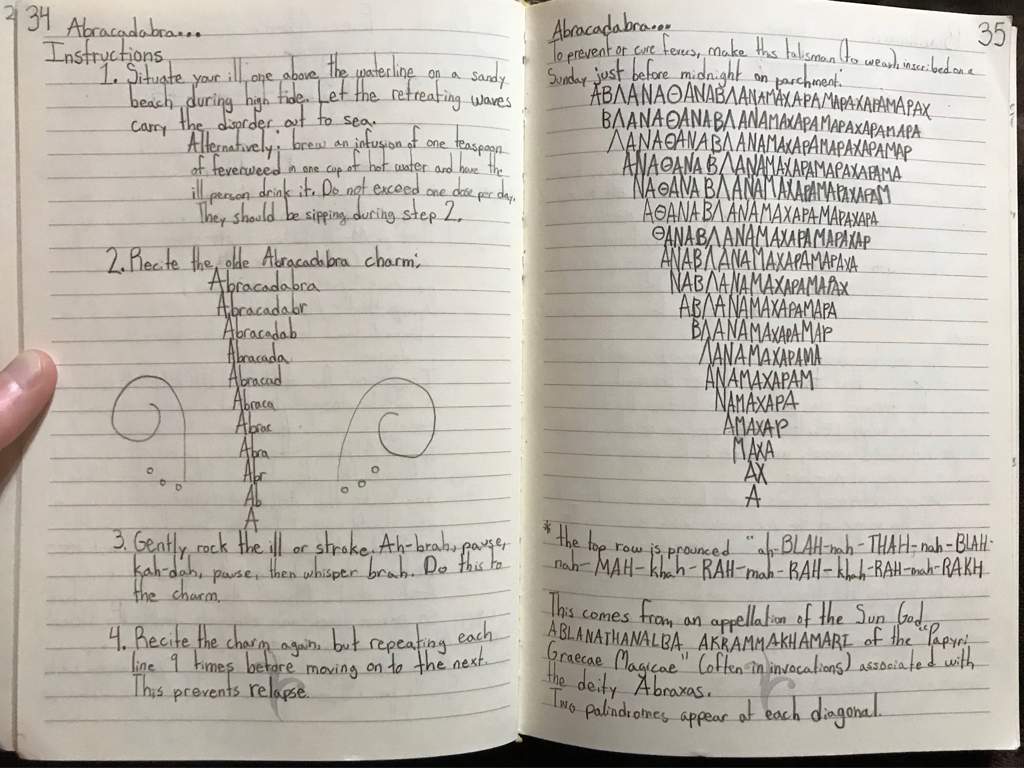 34 Abracadabra...
Instructions
1. Situate your ill one above the waterline on a sandy
beach during high tide. Let the retreating waves
carry the disorder out to sea.
Alternatively: brew an infusion of one teaspoon
of feverweed in one cup of hot water and have the
ill person drink it. Do not exceed one dose per day.
They should be sipping during step 2.
2. Recite the olde Abracadabra charm:
Abracadabra
Abracadabr
Abracadab
Abracada
Abracad
Abraca
Abrac
Abra
Abr
Ab
A
3. Gently rock the ill or stroke. Ah-brah, pause,
kah-dah, pause, then whisper brah. Do this to
the charm.
4. Recite the charm again, but repeating each
line 9 times before moving on to the next.
This prevents relapse.
Abracadabra... 35
To prevent or cure fevers, make this talisman (to wear) inscribed on a
Sunday just before midnight on parchment:
ΑΒΛΑΝΑΘΑΝΑΒΛΑΝΑΜΑΧΑΡΑΜΑΡΑΧΑΡΑΜΑΡΑΧ
ΒΛΑΝΑΘΑΝΑΒΛΑΝΑΜΑΧΑΡΑΜΑΡΑΧΑΡΑΜΑΡΑ
ΛΑΝΑΘΑΝΑΒΛΑΝΑΜΑΧΑΡΑΜΑΡΑΧΑΡΑΜΑΡ
ΑΝΑΘΑΝΑΒΛΑΝΑΜΑΧΑΡΑΜΑΡΑΧΑΡΑΜΑ
ΝΑΘΑΝΑΒΛΑΝΑΜΑΧΑΡΑΜΑΡΑΧΑΡΑΜ
ΑΘΑΝΑΒΛΑΝΑΜΑΧΑΡΑΜΑΡΑΧΑΡΑ
ΘΑΝΑΒΛΑΝΑΜΑΧΑΡΑΜΑΡΑΧΑΡ
ΑΝΑΒΛΑΝΑΜΑΧΑΡΑΜΑΡΑΧΑ
ΝΑΒΛΑΝΑΜΑΧΑΡΑΜΑΡΑΧ
ΑΒΛΑΝΑΜΑΧΑΡΑΜΑΡΑ
ΒΛΑΝΑΜΑΧΑΡΑΜΑΡ
ΛΑΝΑΜΑΧΑΡΑΜΑ
ΑΝΑΜΑΧΑΡΑΜ
ΝΑΜΑΧΑΡΑ
ΑΜΑΧΑΡ
ΜΑΧΑ
ΑΧ
Α
* the top row is prounced "ah-BLAH-nah-THAH-nah-BLAH-
nah-MAH-khah-RAH-mah-RAH-khah-RAH-mah-RAKH
This comes from an appellation of the Sun God,
ABLANATHANALBA AKRAMMAKHAMARI of the "Papyri
Graecae Magicae" (often in invocations) associated with
the deity Abraxas.
Two palindromes appear at each diagonal.